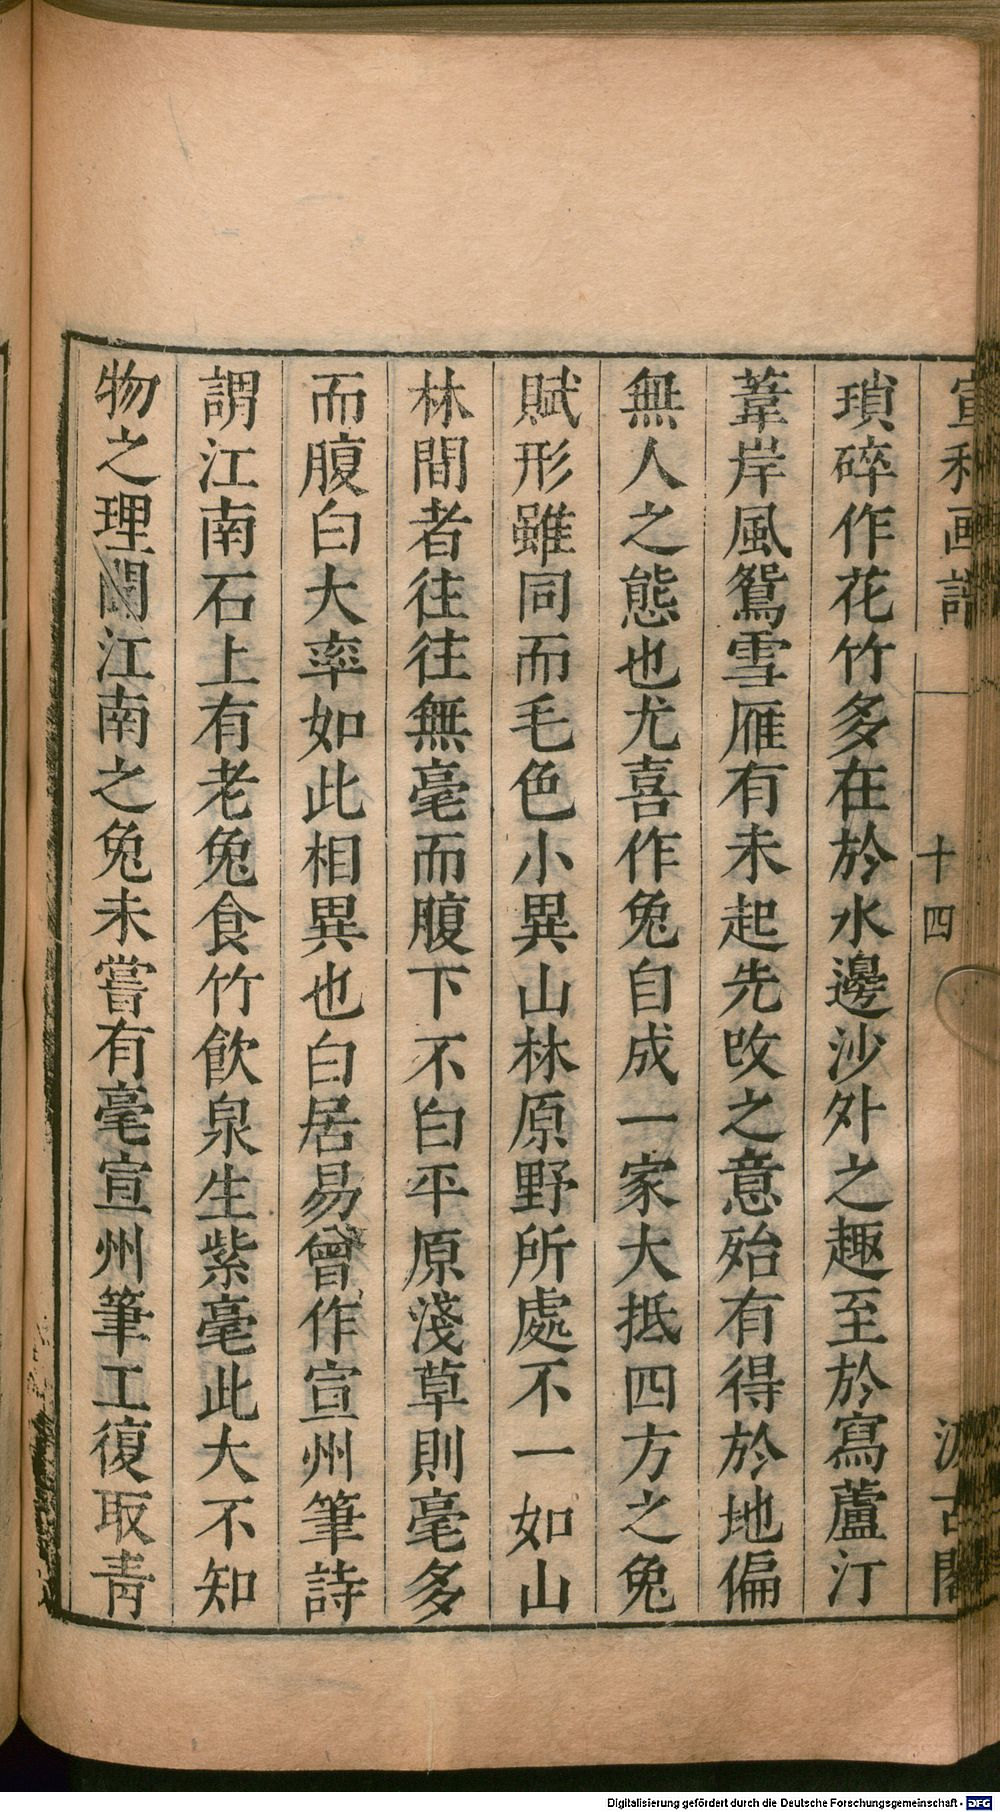 宣和画譜 十四 汲古閣
瑣碎作花竹多在於水邊沙外之趣至於寫蘆汀
葦岸風鴛雪雁有未起先攺之意殆有得於地偏
無人之態也尤喜作兔自成一家大抵四方之兔
賦形雖同而毛色小異山林原野所處不一如山
林間者往往無毫而腹下不白平原淺草則毫多
而腹白大率如此相異也白居易曾作宣州筆詩
謂江南石上有老兔食竹飲泉生紫毫此大不知
物之理聞江南之兔未嘗有毫宣州筆工復取青
Digitalisierung gefördert durch die Deutsche Forschungsgemeinschaft - DFG